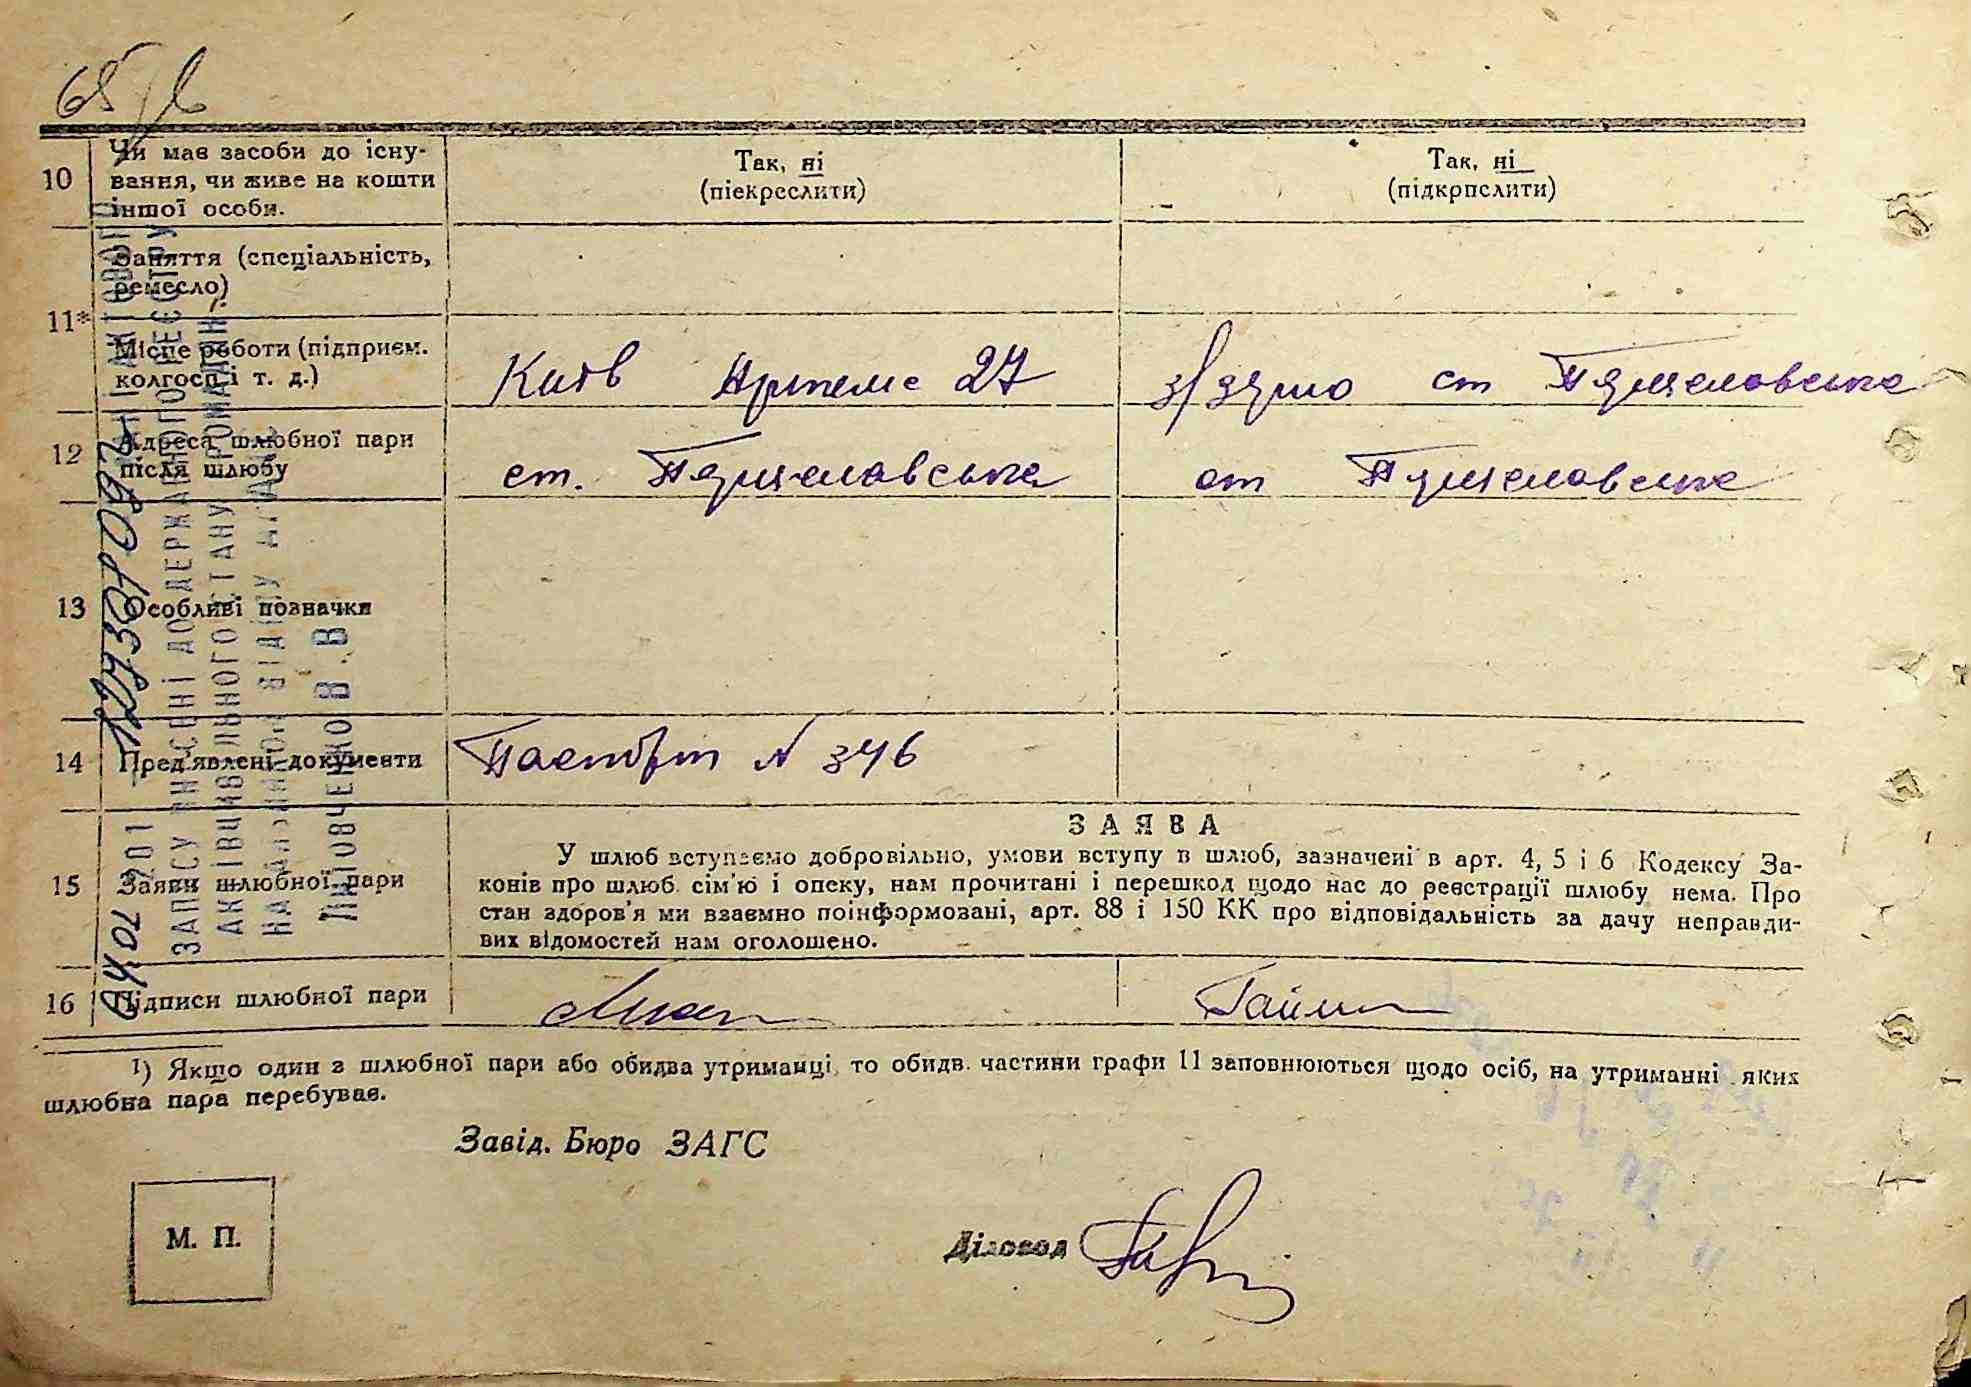 65
10 Чи має засоби до існу-
вання, чи живе на кошти
іншої особи.
Так, ні
(піекреслити)
Так, ні
(підкрпслити)
11*
Заняття (спеціальність,
ремесло)
Місце роботи (підприєм.
колгосп і т. д.)
Київ Артема 27
ст
12 Адреса шлюбної пари
після шлюбу
ст.
ст
13 Особливі позначки
14 Пред'явлені документи
Паспорт № 346
15 Заяви шлюбної пари
ЗАЯВА
У шлюб вступаємо добровільно, умови вступу в шлюб, зазначені в арт. 4, 5 і 6 Кодексу За-
конів про шлюб сім'ю і опеку, нам прочитані і перешкод щодо нас до реєстрації шлюбу нема. Про
стан здоров'я ми взаємно поінформовані, арт. 88 і 150 КК про відповідальність за дачу неправди-
вих відомостей нам оголошено.
16 Підписи шлюбної пари
¹) Якщо один з шлюбної пари або обидва утриманці, то обидв. частини графи 11 заповнюються щодо осіб, на утриманні яких
шлюбна пара перебуває.
Завід. Бюро ЗАГС
М. П.
Діловод
ЗАПИСУ ВНЕСЕНІ ДО ДЕРЖАВНОГО РЕЄСТРУ
АКТІВ ЦИВІЛЬНОГО СТАНУ ГРОМАДЯН